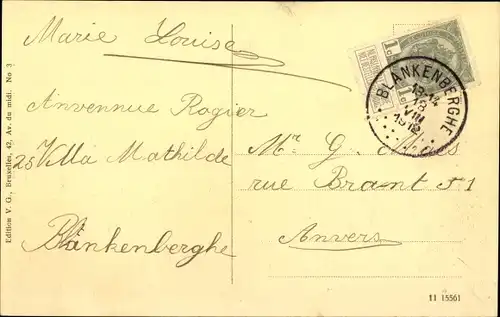 Marie Louise
Anvennue Rogier
25 Villa Mathilde
Blankenberghe
Mr G.
rue Brant 51
Anvers
BLANKENBERGHE
18
VIII
1912
1c
1c
Edition V. G., Bruxelles, 42, Av. du midi. No 3
11 15561